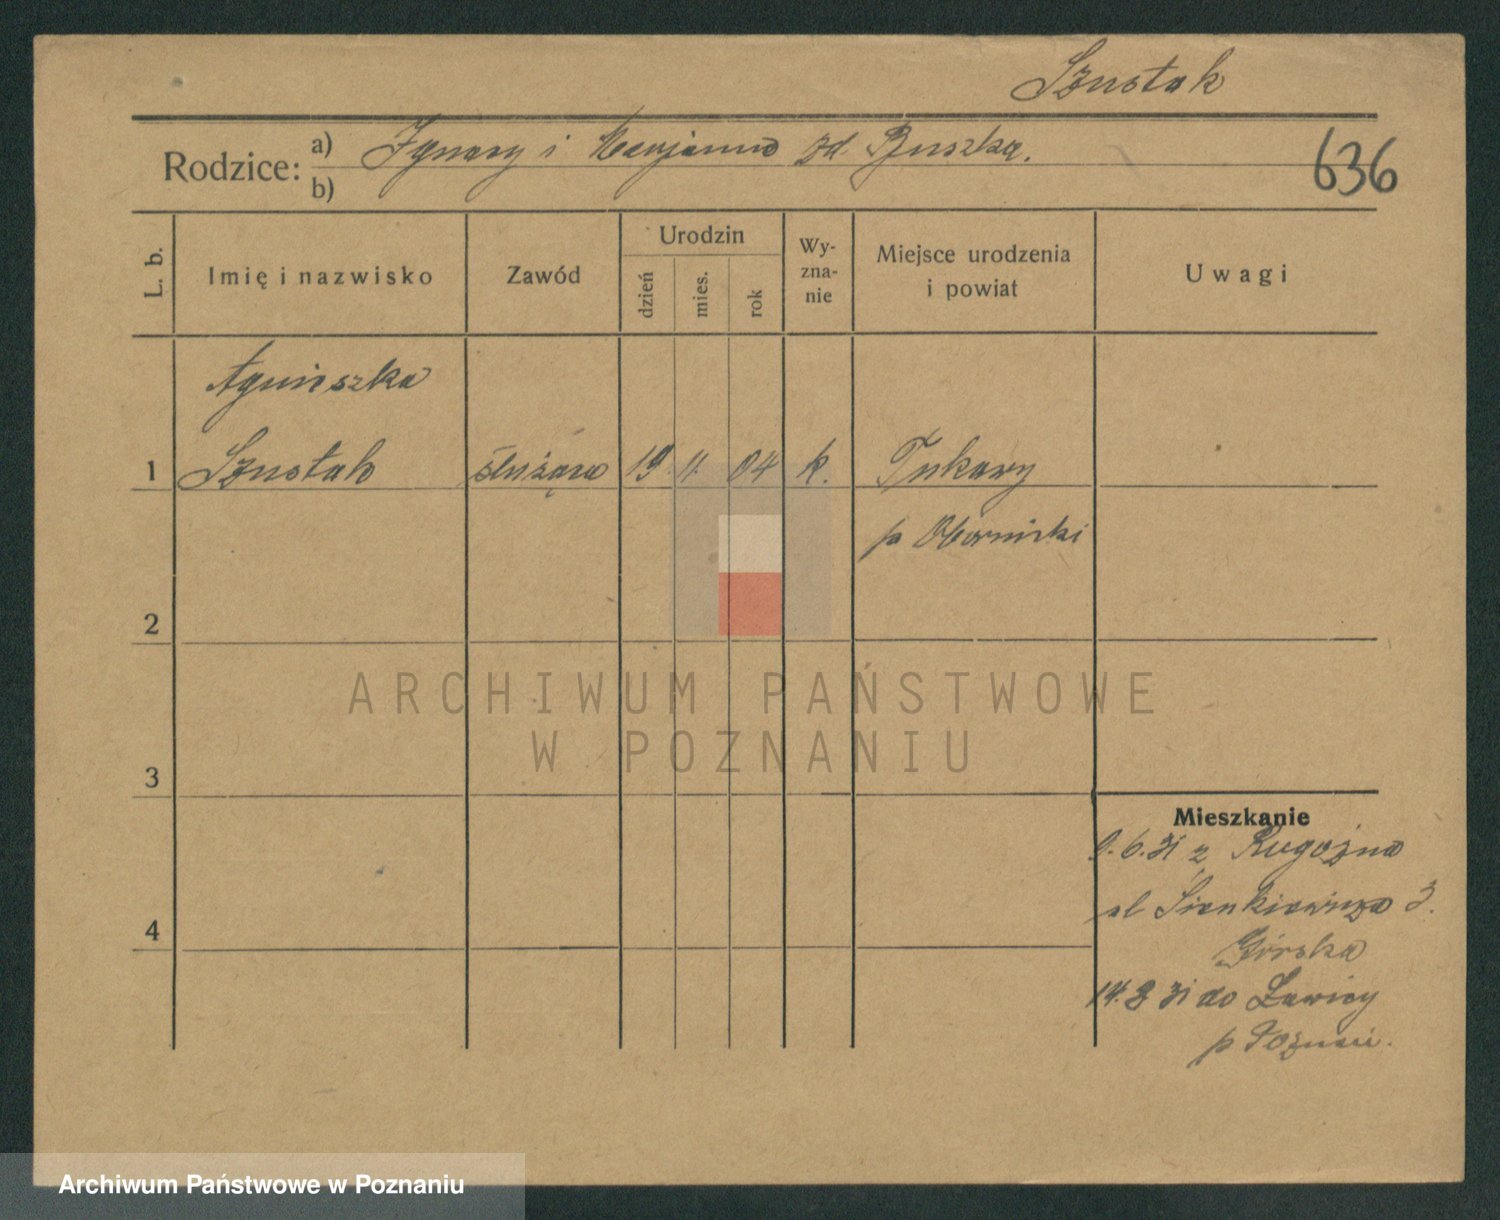 Szustak
Rodzice: a) Ignacy i Marjanna zd. Ruszka.
b)
636
L. b.
Imię i nazwisko
Zawód
Urodzin
dzień
mies.
rok
Wy-
zna-
nie
Miejsce urodzenia
i powiat
Uwagi
Agnieszka
1 Szustak służąca 19. 11. 04 k. Tukawy
p Obornicki
2
3
4
Mieszkanie
9.6.31 z Rogoźna
ul Sienkiewicza 3.
Górska
14. 8 31 do Ławicy
p Poznań.
ARCHIWUM PAŃSTWOWE
W POZNANIU
Archiwum Państwowe w Poznaniu